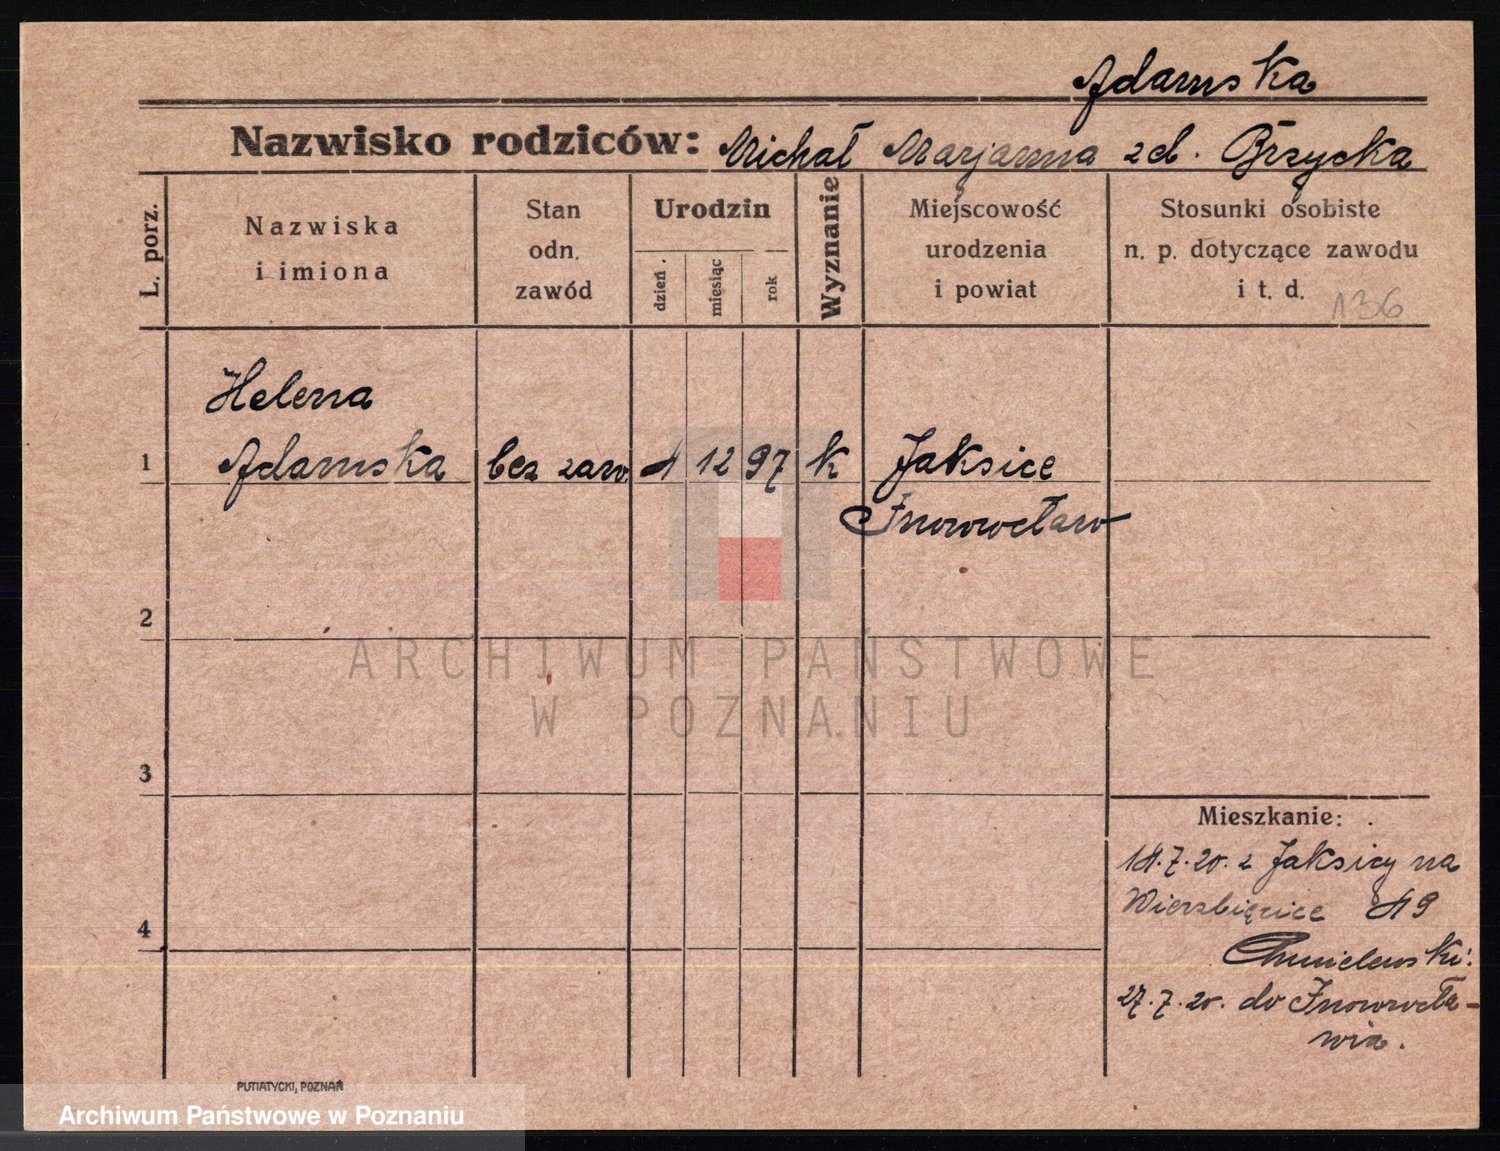 Adamska
Nazwisko rodziców: Michał Marjanna zd. Brzycka
L. porz.
Nazwiska
i imiona
Stan
odn.
zawód
Urodzin
dzień.
miesiąc
rok
Wyznanie
Miejscowość
urodzenia
i powiat
Stosunki osobiste
n. p. dotyczące zawodu
i t. d.
136
Helena
1 Adamska bez zaw. 12 97 k Jaksice
Inowrocław
2
3
4
ARCHIWUM PAŃSTWOWE
W POZNANIU
Mieszkanie:
7.20. z Jaksicy na
Wierzbięcice 9
Chmielewski
27.7.20. do Inowrocła-
wia.
PUTIATYCKI, POZNAŃ
Archiwum Państwowe w Poznaniu